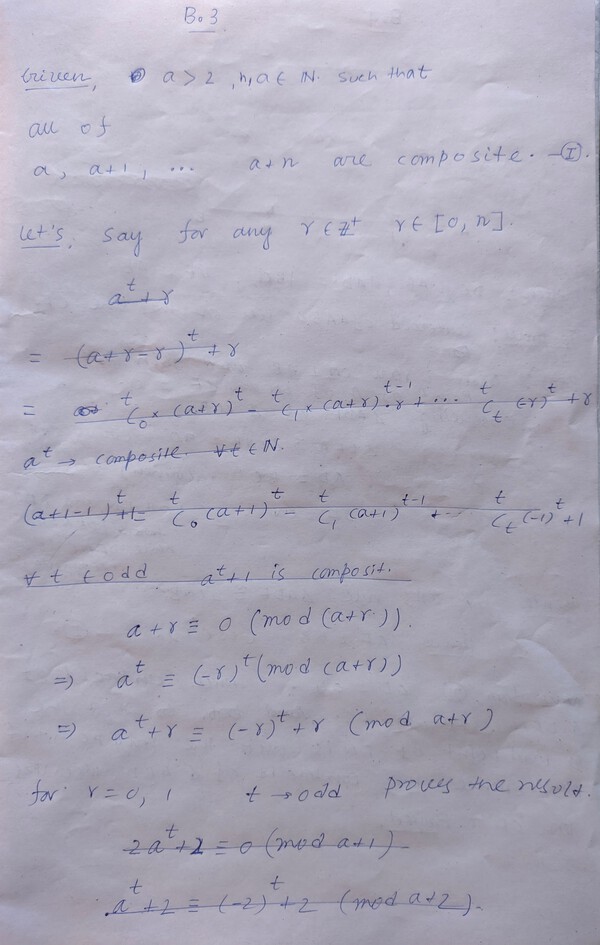 B.3
Given, a > 2, n, a ∈ ℕ. such that
all of
a, a+1, ... a+n are composite. -(I).
Let's, say for any r ∈ Z⁺ r ∈ [0, n].
a^t + r
= (a+r-r)^t + r
= ^tC₀ × (a+r)^t - ^tC₁ × (a+r)^{t-1}·r + ... ^tC_t (-r)^t + r
a^t → composite. ∀ t ∈ ℕ.
(a+1-1)^t + 1 = ^tC₀ (a+1)^t - ^tC₁ (a+1)^{t-1} + ... ^tC_t (-1)^t + 1
∀ t ∈ odd a^t+1 is composit.
a + r ≡ 0 (mod (a+r)).
⇒ a^t ≡ (-r)^t (mod (a+r))
⇒ a^t + r ≡ (-r)^t + r (mod a+r)
for r = 0, 1 t → odd proves the result.
2a^t + 2 ≡ 0 (mod a+1)
a^t + 2 ≡ (-2)^t + 2 (mod a+2).